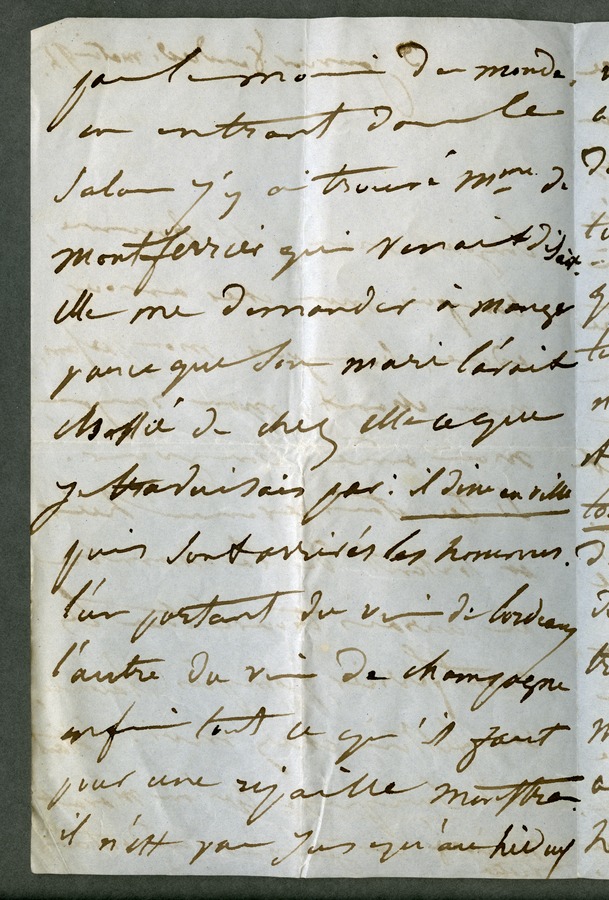 pas le moin du monde.
en entrant dans le
salon j'y ai trouvé Mme de
montferrier qui venait disait
elle me demander à manger
parce que son mari l'avait
chassé de chez elle ce que
je traduisais par: il dine en ville
puis sont arrivés les hommes.
l'un portant du vin de bordeaux
l'autre du vin de champagne
enfin tout ce qu'il faut
pour une ripaille monstre.
il n'est pas jusqu'au